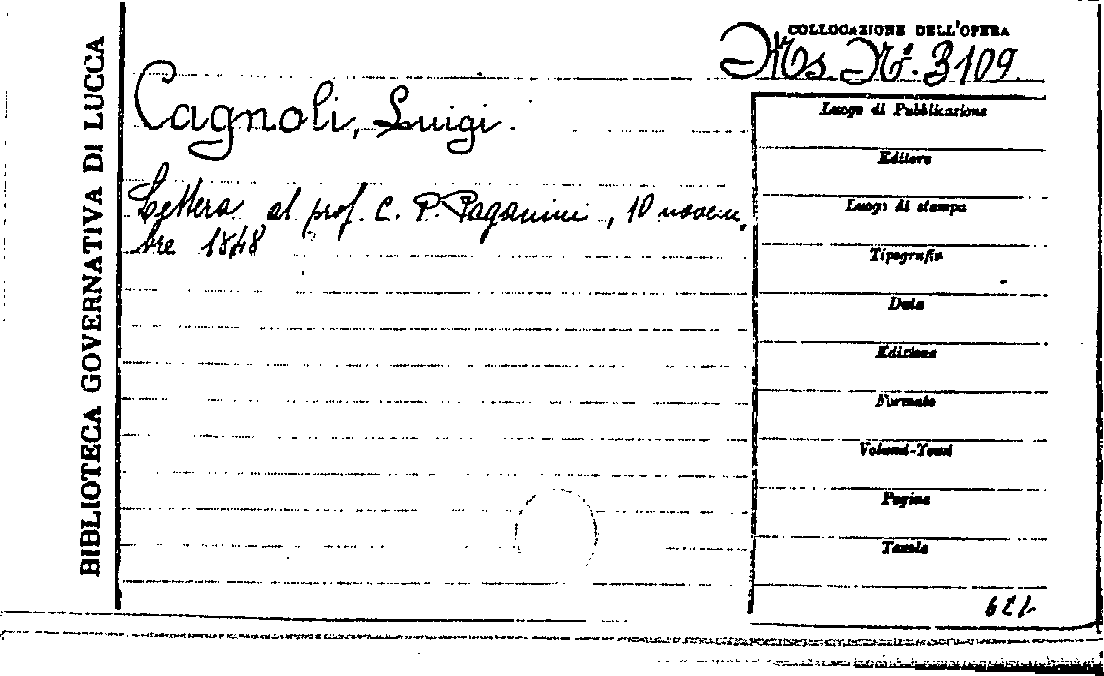 BIBLIOTECA GOVERNATIVA DI LUCCA
COLLOCAZIONE DELL'OPERA
Ms. N°. 3109
Cagnoli, Luigi.
Lettera al prof. C. P. Paganini, 10 novem,
bre 1848
Luogo di Pubblicazione
Editore
Luogo di stampa
Tipografia
Data
Edizione
Formato
Volumi-Tomi
Pagine
Tavole